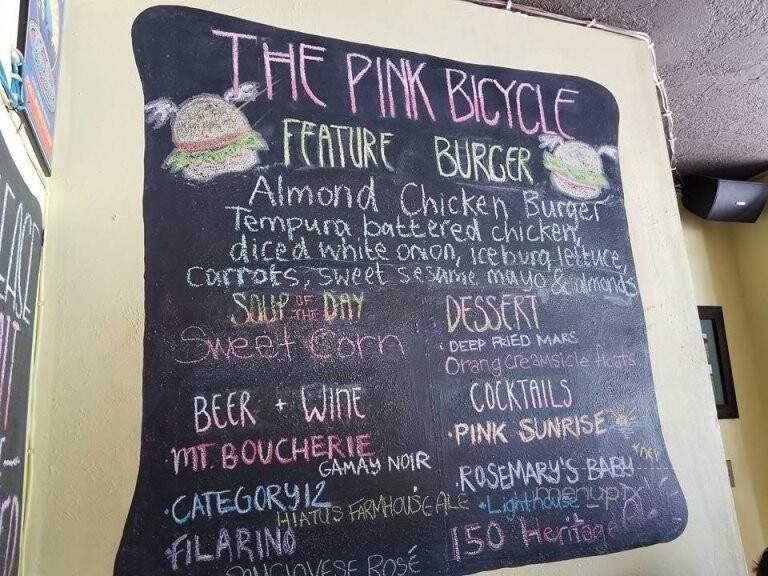 THE PINK BICYCLE
FEATURE BURGER
Almond Chicken Burger
Tempura battered chicken,
diced white onion, iceburg lettuce,
carrots, sweet sesame mayo & almonds
SOUP OF THE DAY
Sweet Corn
DESSERT
DEEP FRIED MARS
Orang creamsicle floats
BEER + WINE
MT. BOUCHERIE
GAMAY NOIR
CATEGORY 12
HIATUS FARMHOUSE ALE
FILARINO
SANGIOVESE ROSÉ
COCKTAILS
PINK SUNRISE
ROSEMARY'S BABY
Lighthouse
150 Heritage
menupix
EASE